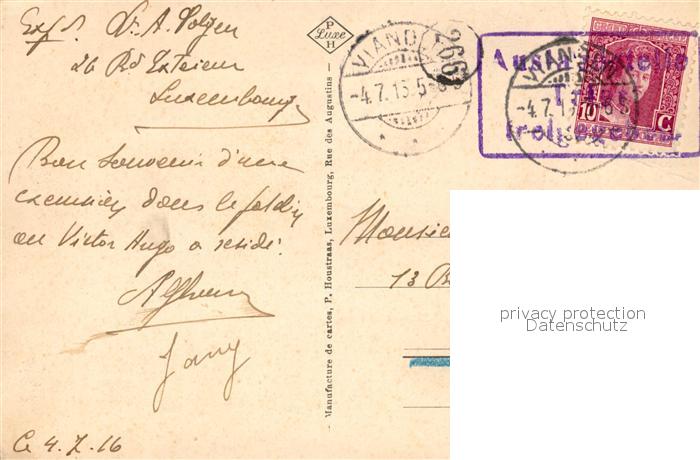 Exp. Dr. A.
26 Bd Exterieur
Luxembourg
Bon souvenir d'une
excursion dans le jardin
ou Victor Hugo a résidé.
Jony
Ce 4.7.16
P
Luxe
H
Manufacture de cartes, P. Houstraas, Luxembourg, Rue des Augustins
VIANDEN
-4.7.15.5-6
266
Auslandstelle
Trier
freigegeben
VIANDEN
-4.7.15.5-6
10 C
Monsieur
13
privacy protection
Datenschutz